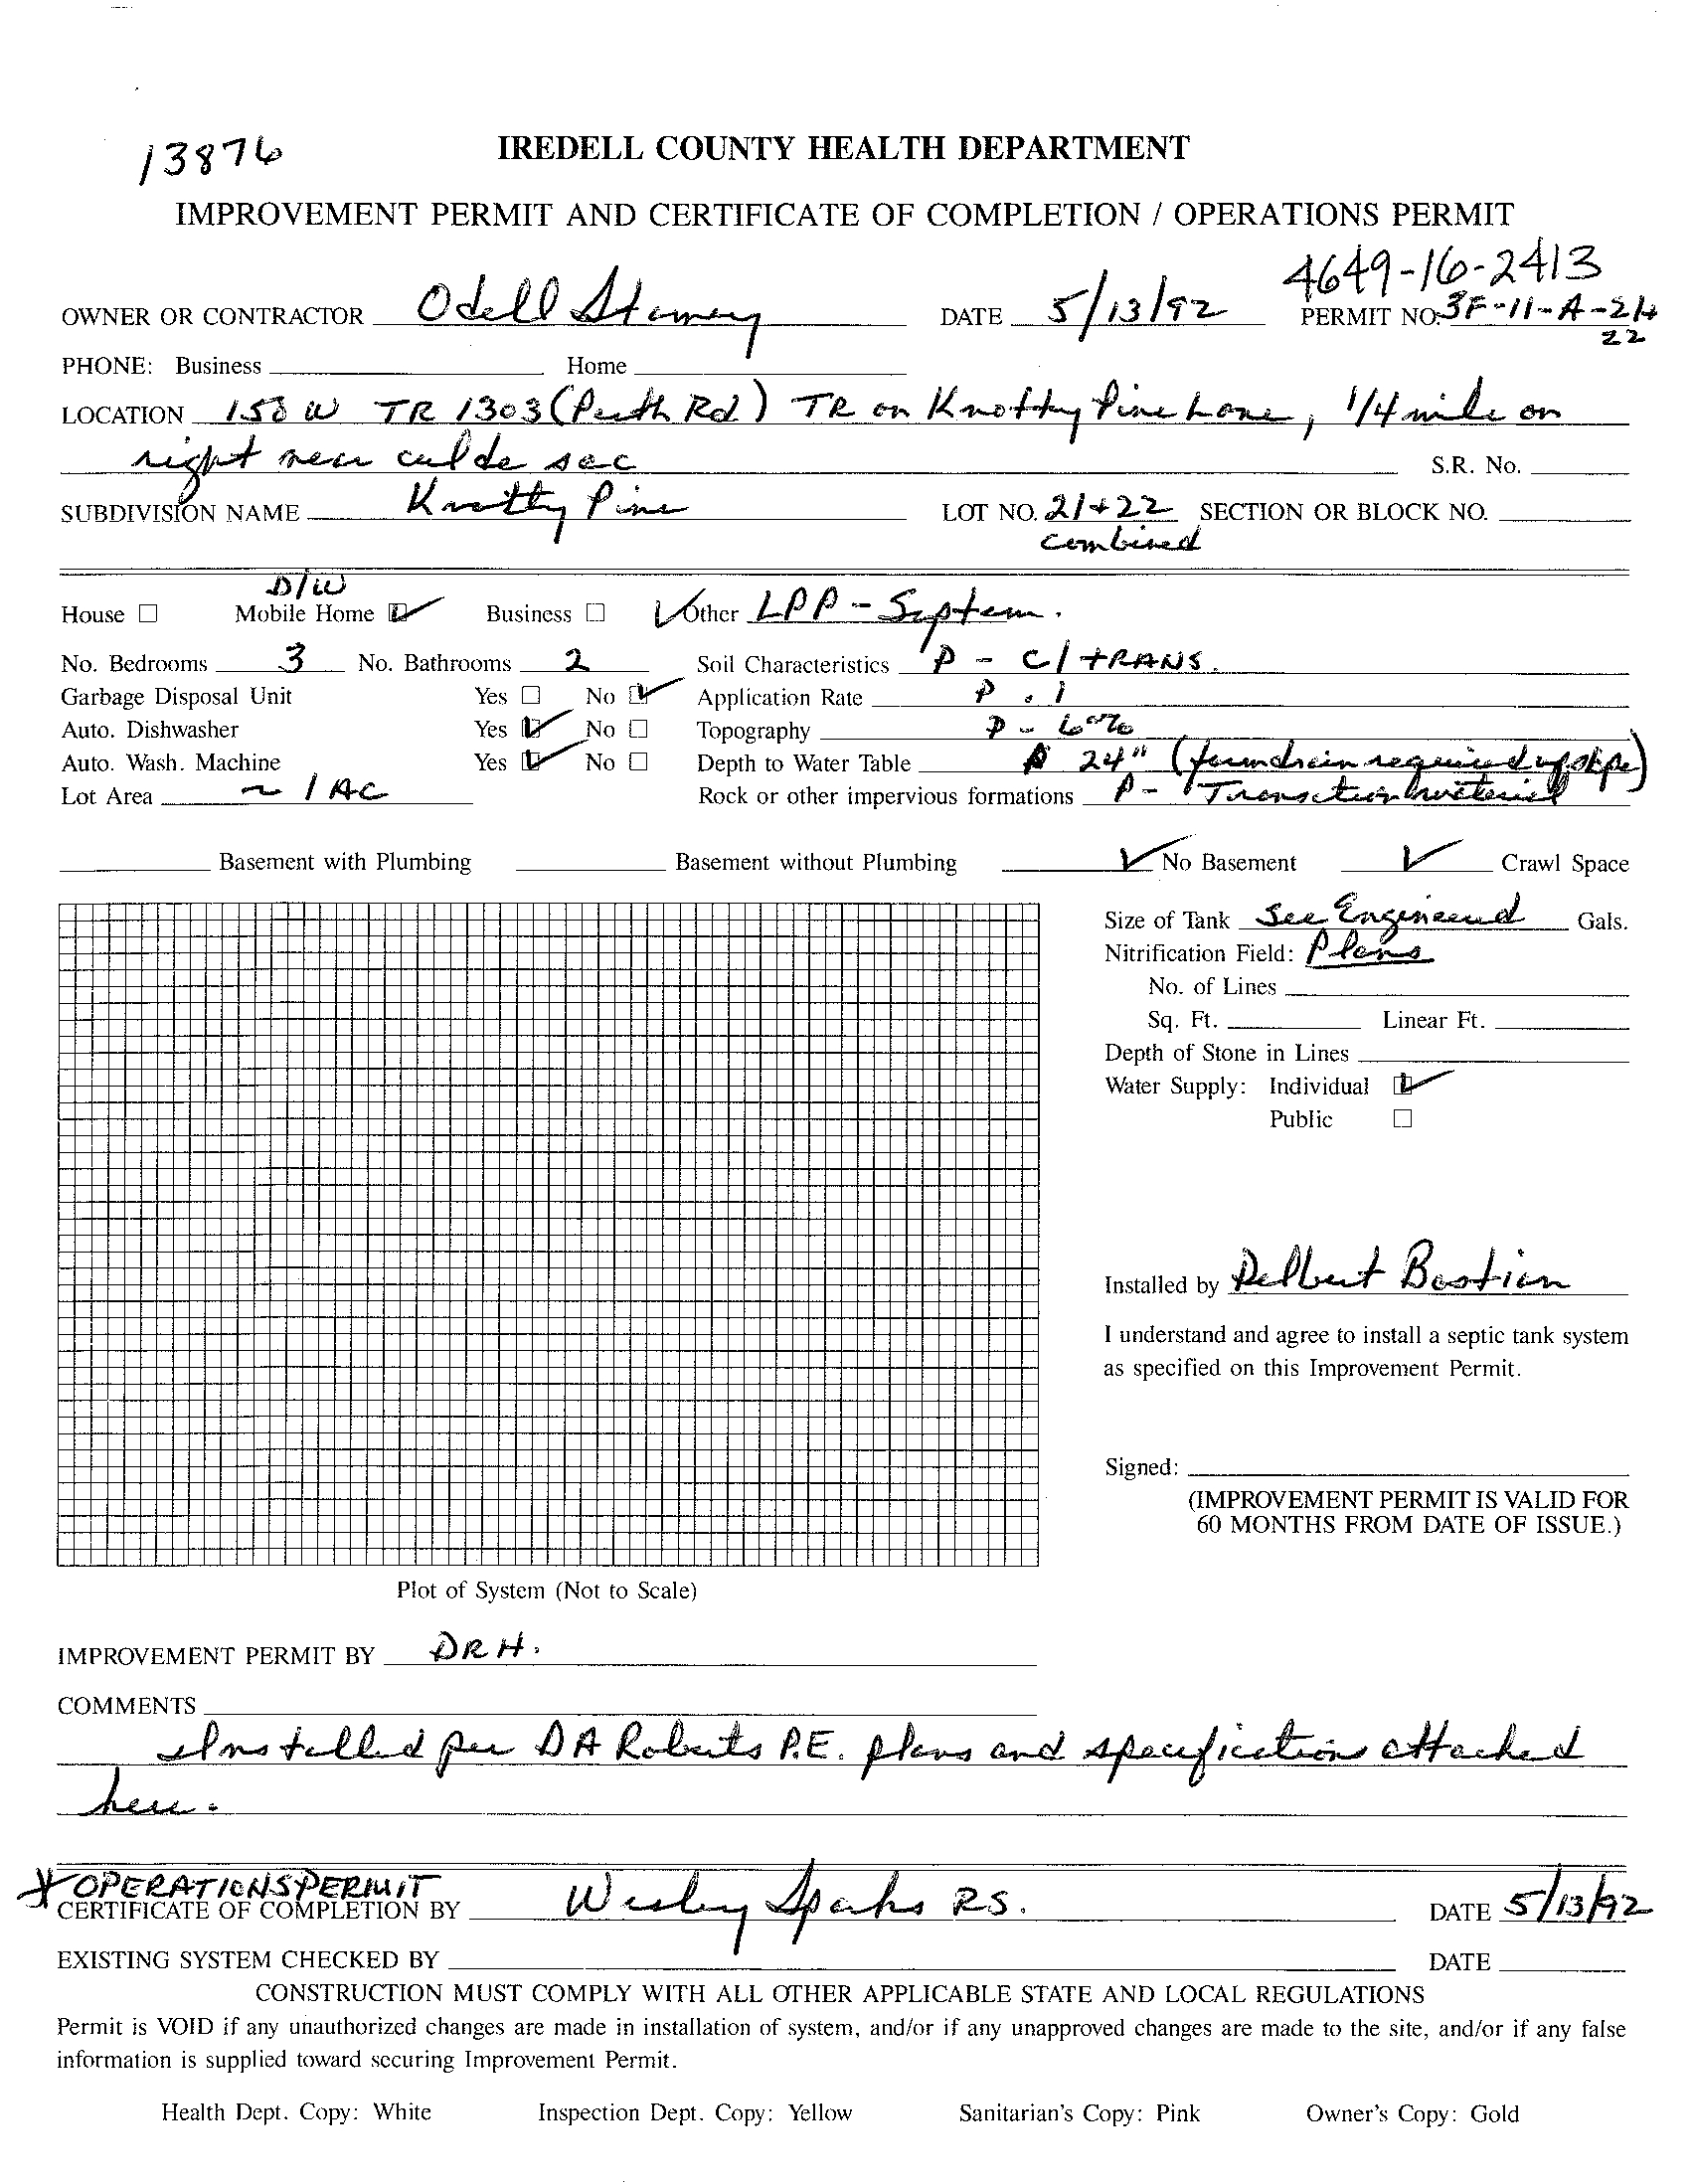 13876
IREDELL COUNTY HEALTH DEPARTMENT
IMPROVEMENT PERMIT AND CERTIFICATE OF COMPLETION / OPERATIONS PERMIT
4649-16-2413
OWNER OR CONTRACTOR Odell Stamey DATE 5/13/92 PERMIT NO. 3F-11-A-21+
22
PHONE: Business Home
LOCATION 150 W TR 1303 (Perth Rd) TR on Knotty Pine Lane, 1/4 mile on
right near cul de sac S.R. No.
SUBDIVISION NAME Knotty Pine LOT NO. 21+22 SECTION OR BLOCK NO.
combined
D/W
House ☐ Mobile Home ☑ Business ☐ ✓Other LPP - System.
No. Bedrooms 3 No. Bathrooms 2 Soil Characteristics P - Cl TRANS.
Garbage Disposal Unit Yes ☐ No ☑ Application Rate P .1
Auto. Dishwasher Yes ☑ No ☐ Topography P - 6%
Auto. Wash. Machine Yes ☑ No ☐ Depth to Water Table 24" ( required upslope)
Lot Area ~ 1 AC Rock or other impervious formations P - material
Basement with Plumbing Basement without Plumbing ✓ No Basement ✓ Crawl Space
Size of Tank See Engineered Gals.
Nitrification Field: Plans
No. of Lines
Sq. Ft. Linear Ft.
Depth of Stone in Lines
Water Supply: Individual ☑
Public ☐
Installed by Delbert Bostian
I understand and agree to install a septic tank system
as specified on this Improvement Permit.
Signed:
(IMPROVEMENT PERMIT IS VALID FOR
60 MONTHS FROM DATE OF ISSUE.)
Plot of System (Not to Scale)
IMPROVEMENT PERMIT BY DRH.
COMMENTS
Installed per DA Roberts P.E. plans and specification attached
here.
* OPERATIONS PERMIT
CERTIFICATE OF COMPLETION BY Wesley Sparks RS. DATE 5/13/92
EXISTING SYSTEM CHECKED BY DATE
CONSTRUCTION MUST COMPLY WITH ALL OTHER APPLICABLE STATE AND LOCAL REGULATIONS
Permit is VOID if any unauthorized changes are made in installation of system, and/or if any unapproved changes are made to the site, and/or if any false
information is supplied toward securing Improvement Permit.
Health Dept. Copy: White Inspection Dept. Copy: Yellow Sanitarian's Copy: Pink Owner's Copy: Gold